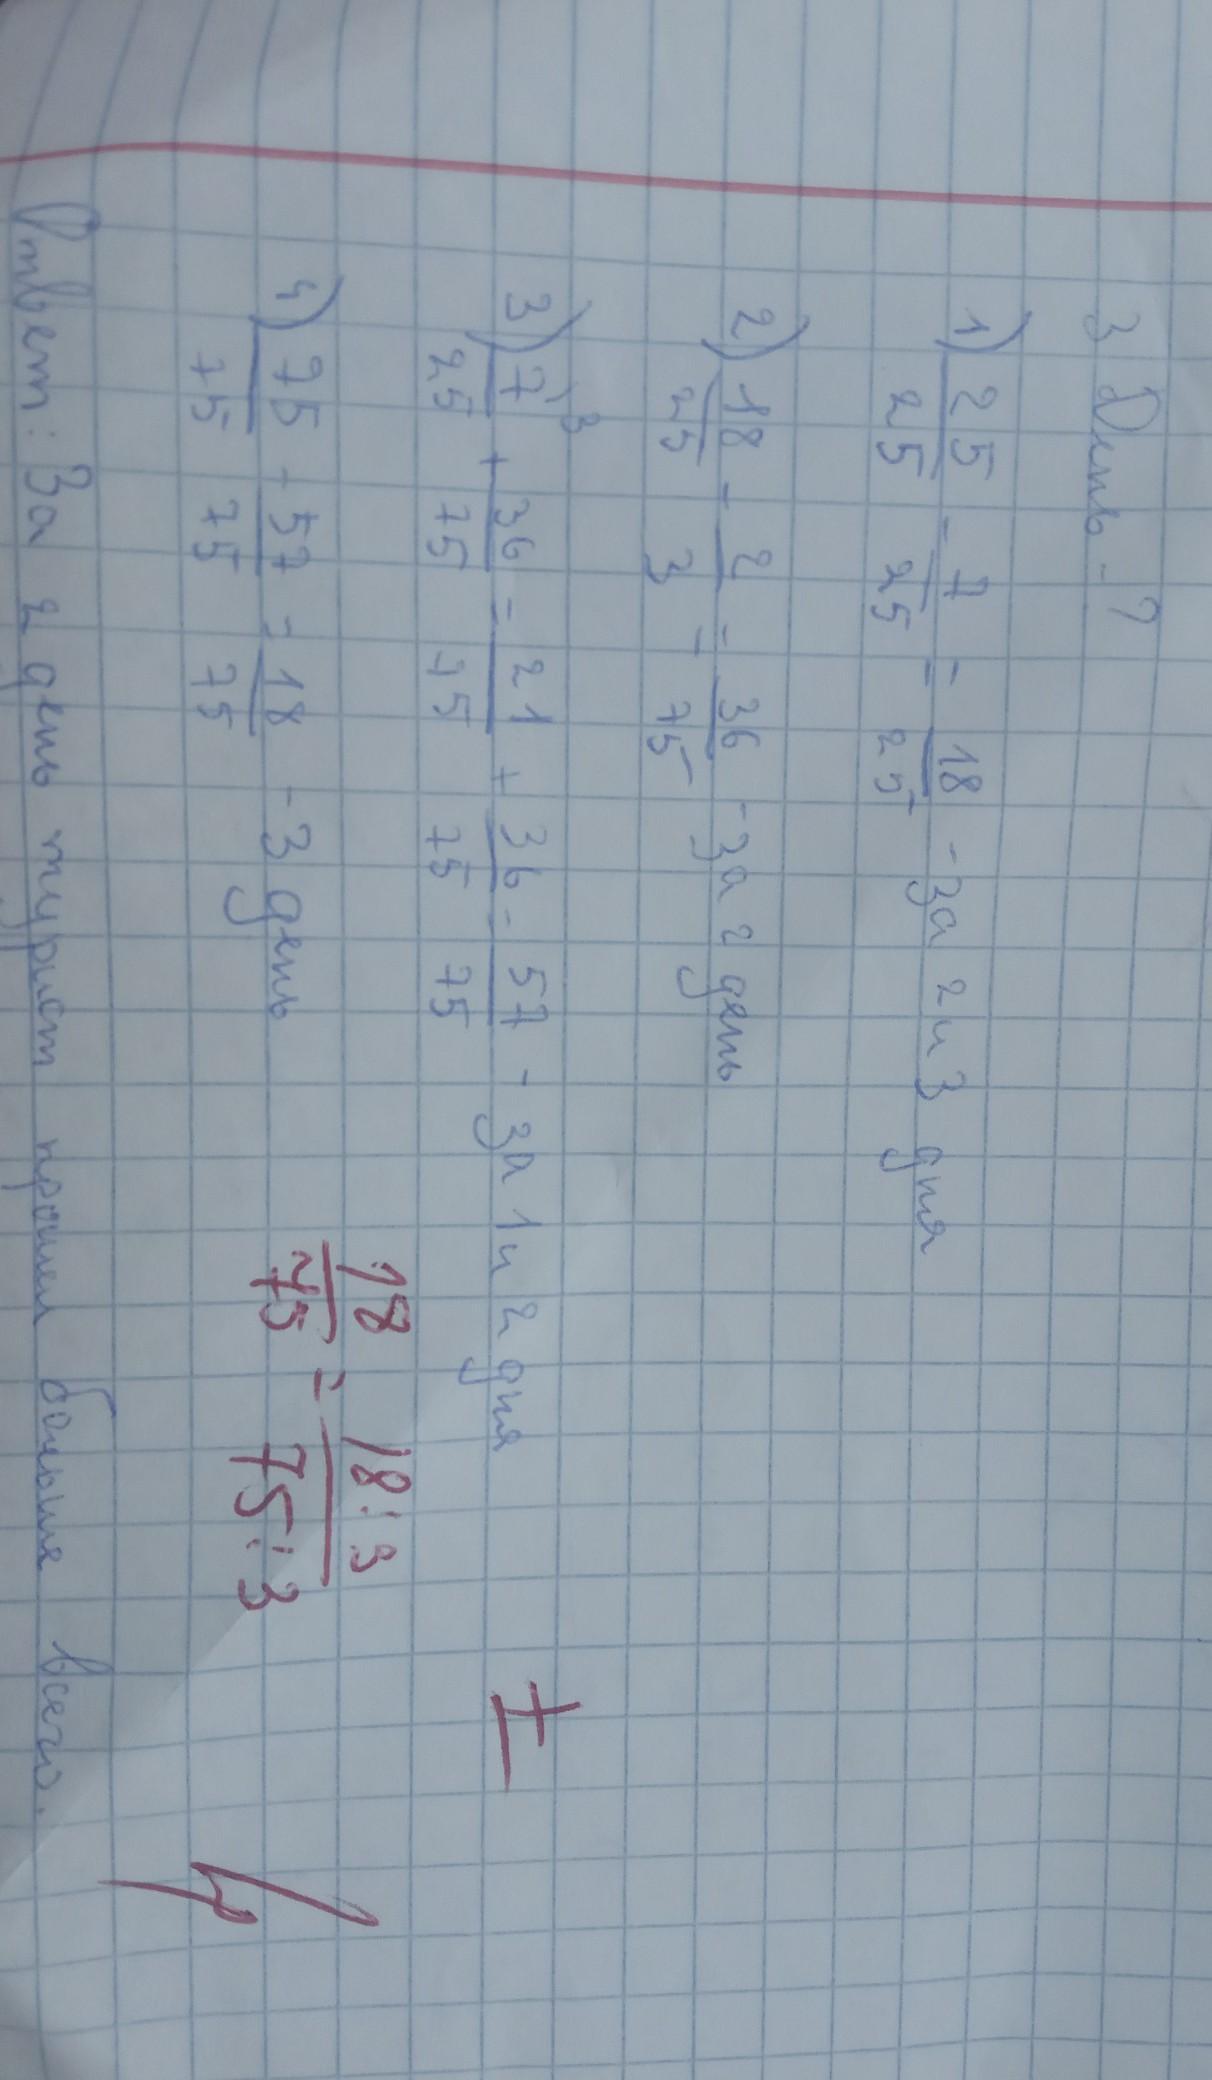 3 День - ?
1) 25/25 - 7/25 = 18/25 - за 2 и 3 дня
2) 18/25 · 2/3 = 36/75 - за 2 день
3) 7/25 ³ + 36/75 = 21/75 + 36/75 = 57/75 - за 1 и 2 дня
4) 75/75 - 57/75 = 18/75 - 3 день
18/75 = 18:3/75:3
±
4
Ответ: За 2 день турист прошел больше всего.